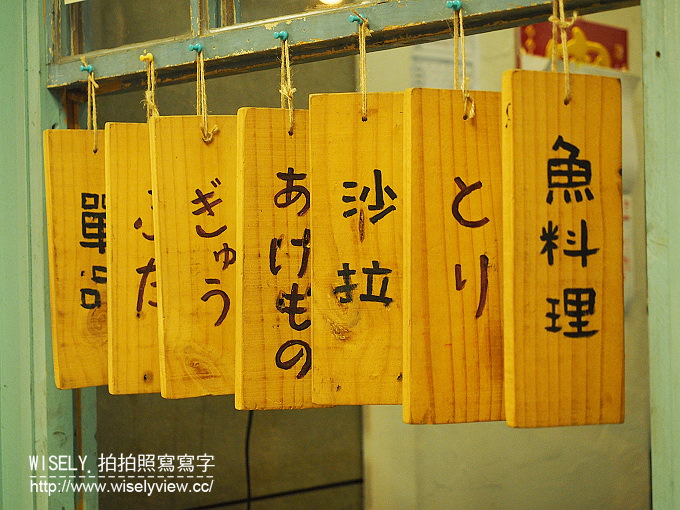 單
ぶた
ぎゅう
あげもの
沙拉
とり
魚料理
WISELY 拍拍照寫寫字
http://www.wiselyview.cc/